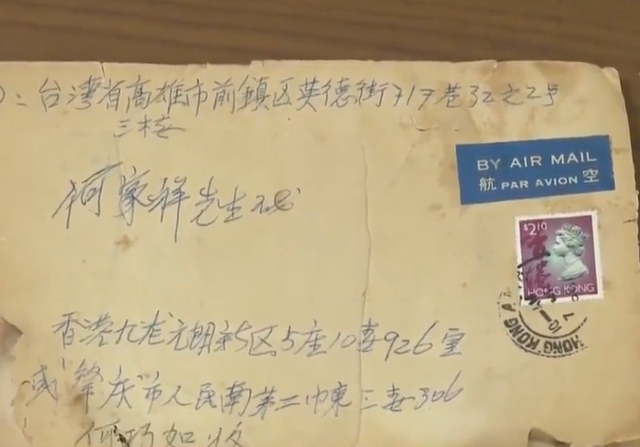 台湾省高雄市前鎮区英德街717巷32之2号
三楼
何家祥先生
BY AIR MAIL
航 PAR AVION 空
$2.10
HONG KONG
HONG KONG
香港九龙元朗新5区5座10楼926室
或肇庆市人民南第二巾東三楼306
何巧如收